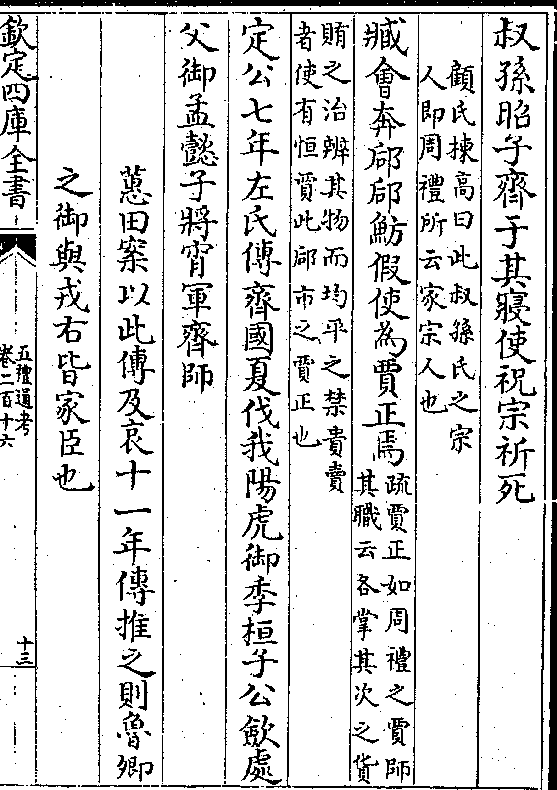 叔孫昭子齊于其寢使祝宗祈死
顧氏棟高曰此叔孫氏之宗
人即周禮所云家宗人也
臧會奔郈郈魴假使為賈正焉
疏賈正如周禮之賈師
其職云各掌其次之貨
賄之治辨其物而均平之禁貴賣
者使有恒賈此郈市之賈正也
定公七年左氏傳齊國夏伐我陽虎御季桓子公斂處
父御孟懿子將宵軍齊師
蕙田案以此傳及哀十一年傳推之則魯卿
之御與戎右皆家臣也
欽定四庫全書
五禮通考
卷二百十六
十三